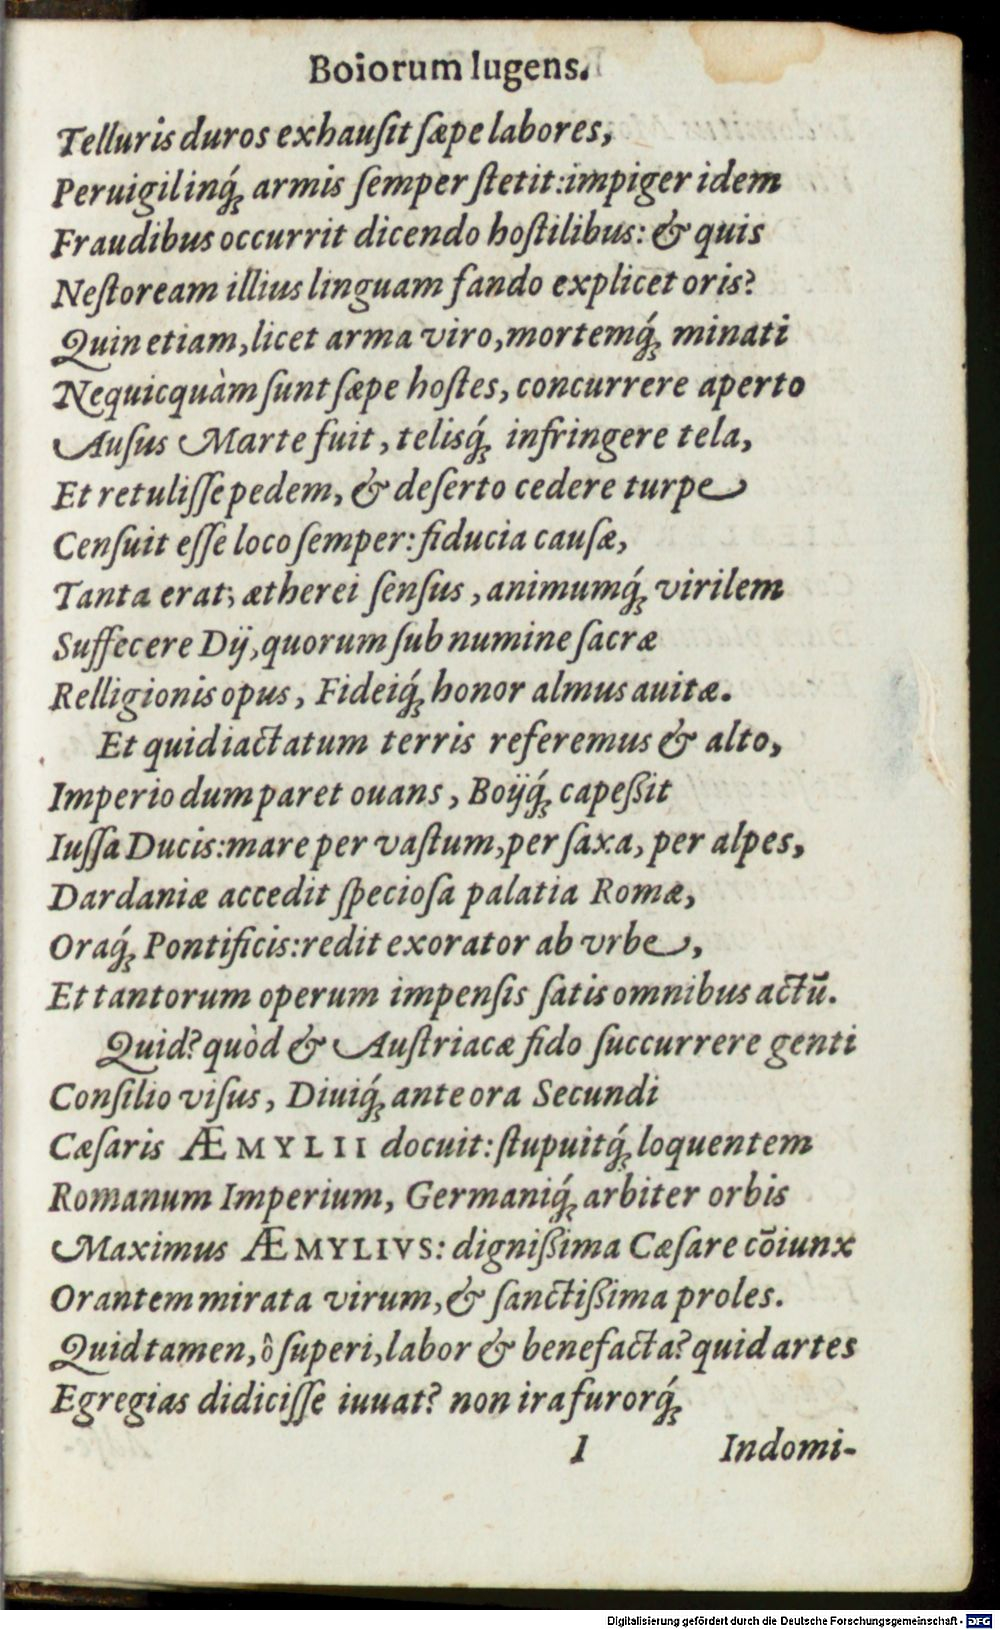 Boiorum lugens.
Telluris duros exhauſit ſæpe labores,
Peruigilinq́ꝫ armis ſemper ſtetit: impiger idem
Fraudibus occurrit dicendo hoſtilibus: & quis
Neſtoream illius linguam fando explicet oris?
Quin etiam, licet arma viro, mortemq́ꝫ minati
Nequicquàm ſunt ſæpe hoſtes, concurrere aperto
Auſus Marte fuit, telisq́ꝫ infringere tela,
Et retuliſſe pedem, & deſerto cedere turpe
Cenſuit eſſe loco ſemper: fiducia cauſæ,
Tanta erat; ætherei ſenſus, animumq́ꝫ virilem
Suffecere Dij, quorum ſub numine ſacræ
Relligionis opus, Fideiq́ꝫ honor almus auitæ.
Et quid iactatum terris referemus & alto,
Imperio dum paret ouans, Boijq́ꝫ capeßit
Iuſſa Ducis: mare per vaſtum, per ſaxa, per alpes,
Dardaniæ accedit ſpecioſa palatia Romæ,
Oraq́ꝫ Pontificis: redit exorator ab vrbe,
Et tantorum operum impenſis ſatis omnibus actū.
Quid? quòd & Auſtriacæ fido ſuccurrere genti
Conſilio viſus, Diuiq́ꝫ ante ora Secundi
Cæſaris ÆMYLII docuit: ſtupuitq́ꝫ loquentem
Romanum Imperium, Germaniq́ꝫ arbiter orbis
Maximus ÆMYLIVS: digniſſima Cæſare cōiunx
Orantem mirata virum, & ſanctißima proles.
Quid tamen, ô ſuperi, labor & benefacta? quid artes
Egregias didiciſſe iuuat? non ira furorq́ꝫ
I Indomi-
Digitalisierung gefördert durch die Deutsche Forschungsgemeinschaft - DFG